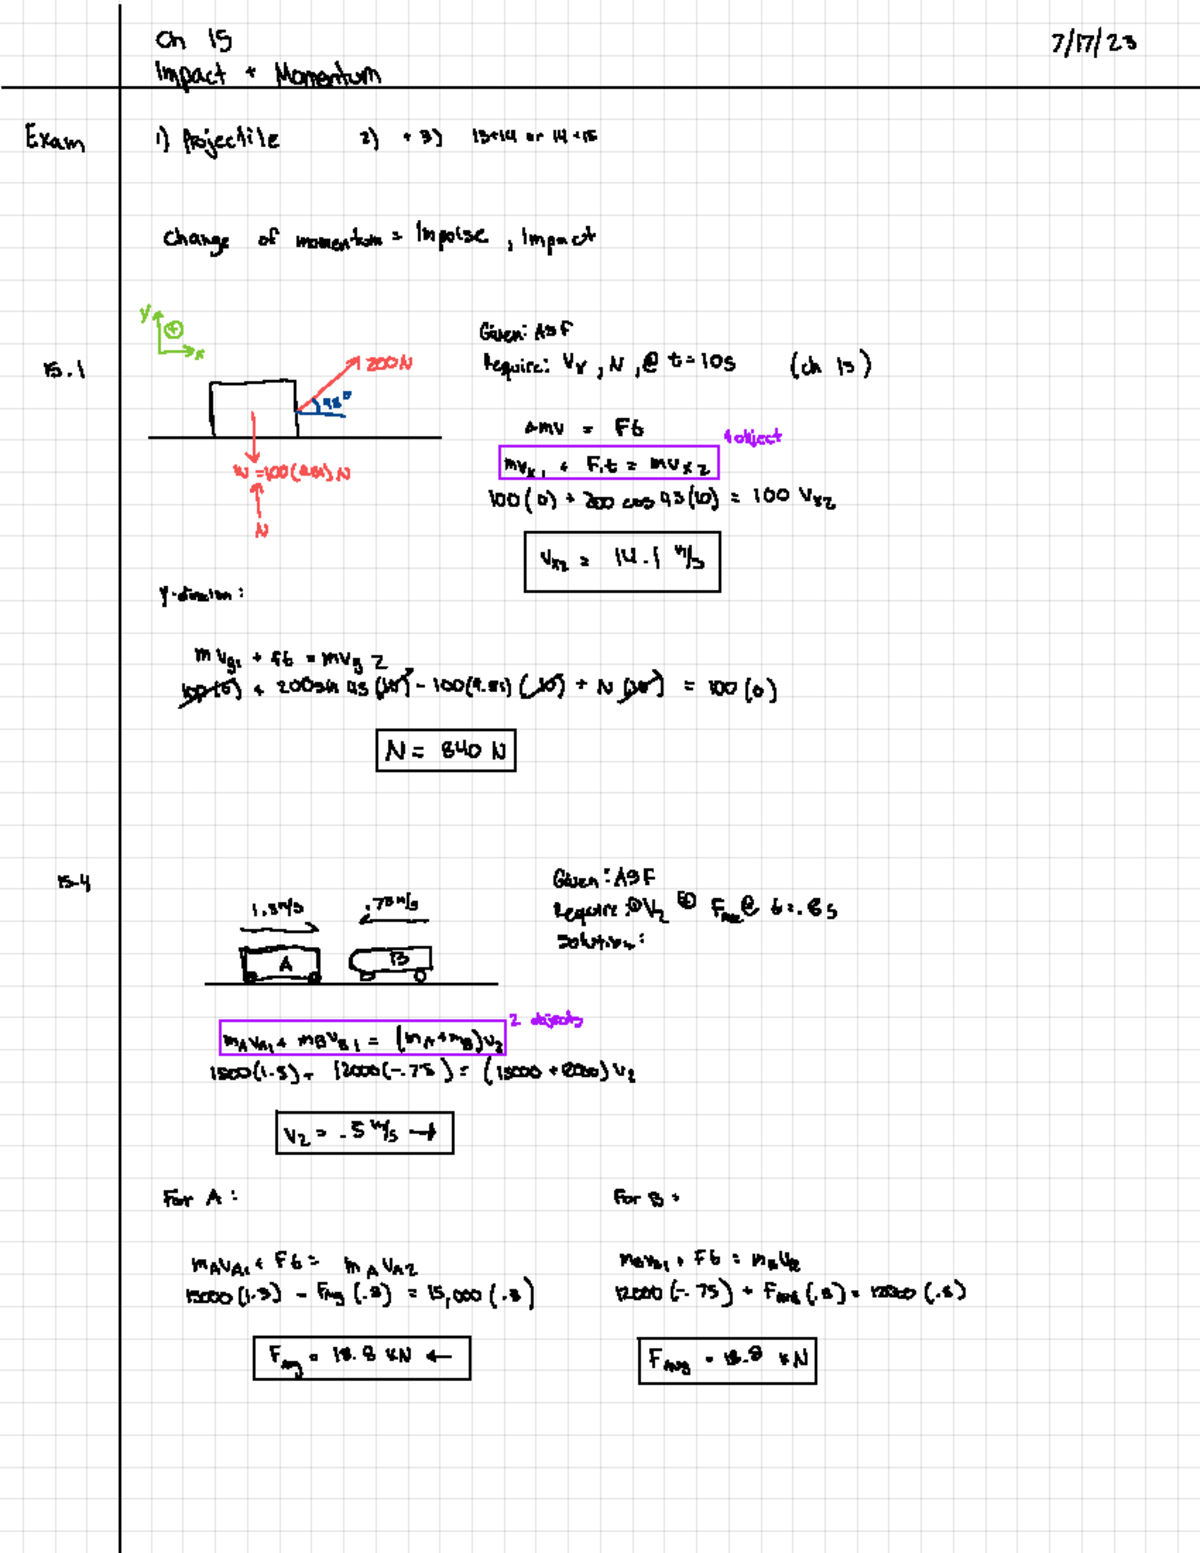 Ch 15
7/17/23
Impact + Momentum
Exam
1) Projectile 2) + 3) 13+14 or 14+15
Change of momentum = Impolse, Impact
y
x
15.1
200N
45°
W=100(9.81)N
N
Given: ASF
Require: Vx, N, @ t=10s (ch 13)
Δmv = Ft
1 object
mvx1 + F1t = mvx2
100(0) + 200 cos 45(10) = 100 Vx2
Vx2 = 14.1 m/s
Y-direction:
mvy1 + Ft = mvy2
100(0) + 200sin 45(10) - 100(9.81)(10) + N(10) = 100(0)
N = 840 N
15-4
Given: ASF
Require: ① V2 ② Favg @ t=.8s
Solution:
1.5m/s
.75m/s
A
B
2 objects
mAVA1 + mBVB1 = (mA+mB)v2
1500(1.5) + 12000(-.75) = (15000+12000)v2
V2 = .5 m/s →
For A:
mAVA1 + Ft = mAVA2
15000(1.5) - Favg(.8) = 15,000(.5)
Favg = 18.8 kN ←
For B:
mBVB1 + Ft = mBVB2
12000(-.75) + Favg(.8) = 12000(.5)
Favg = 18.8 kN